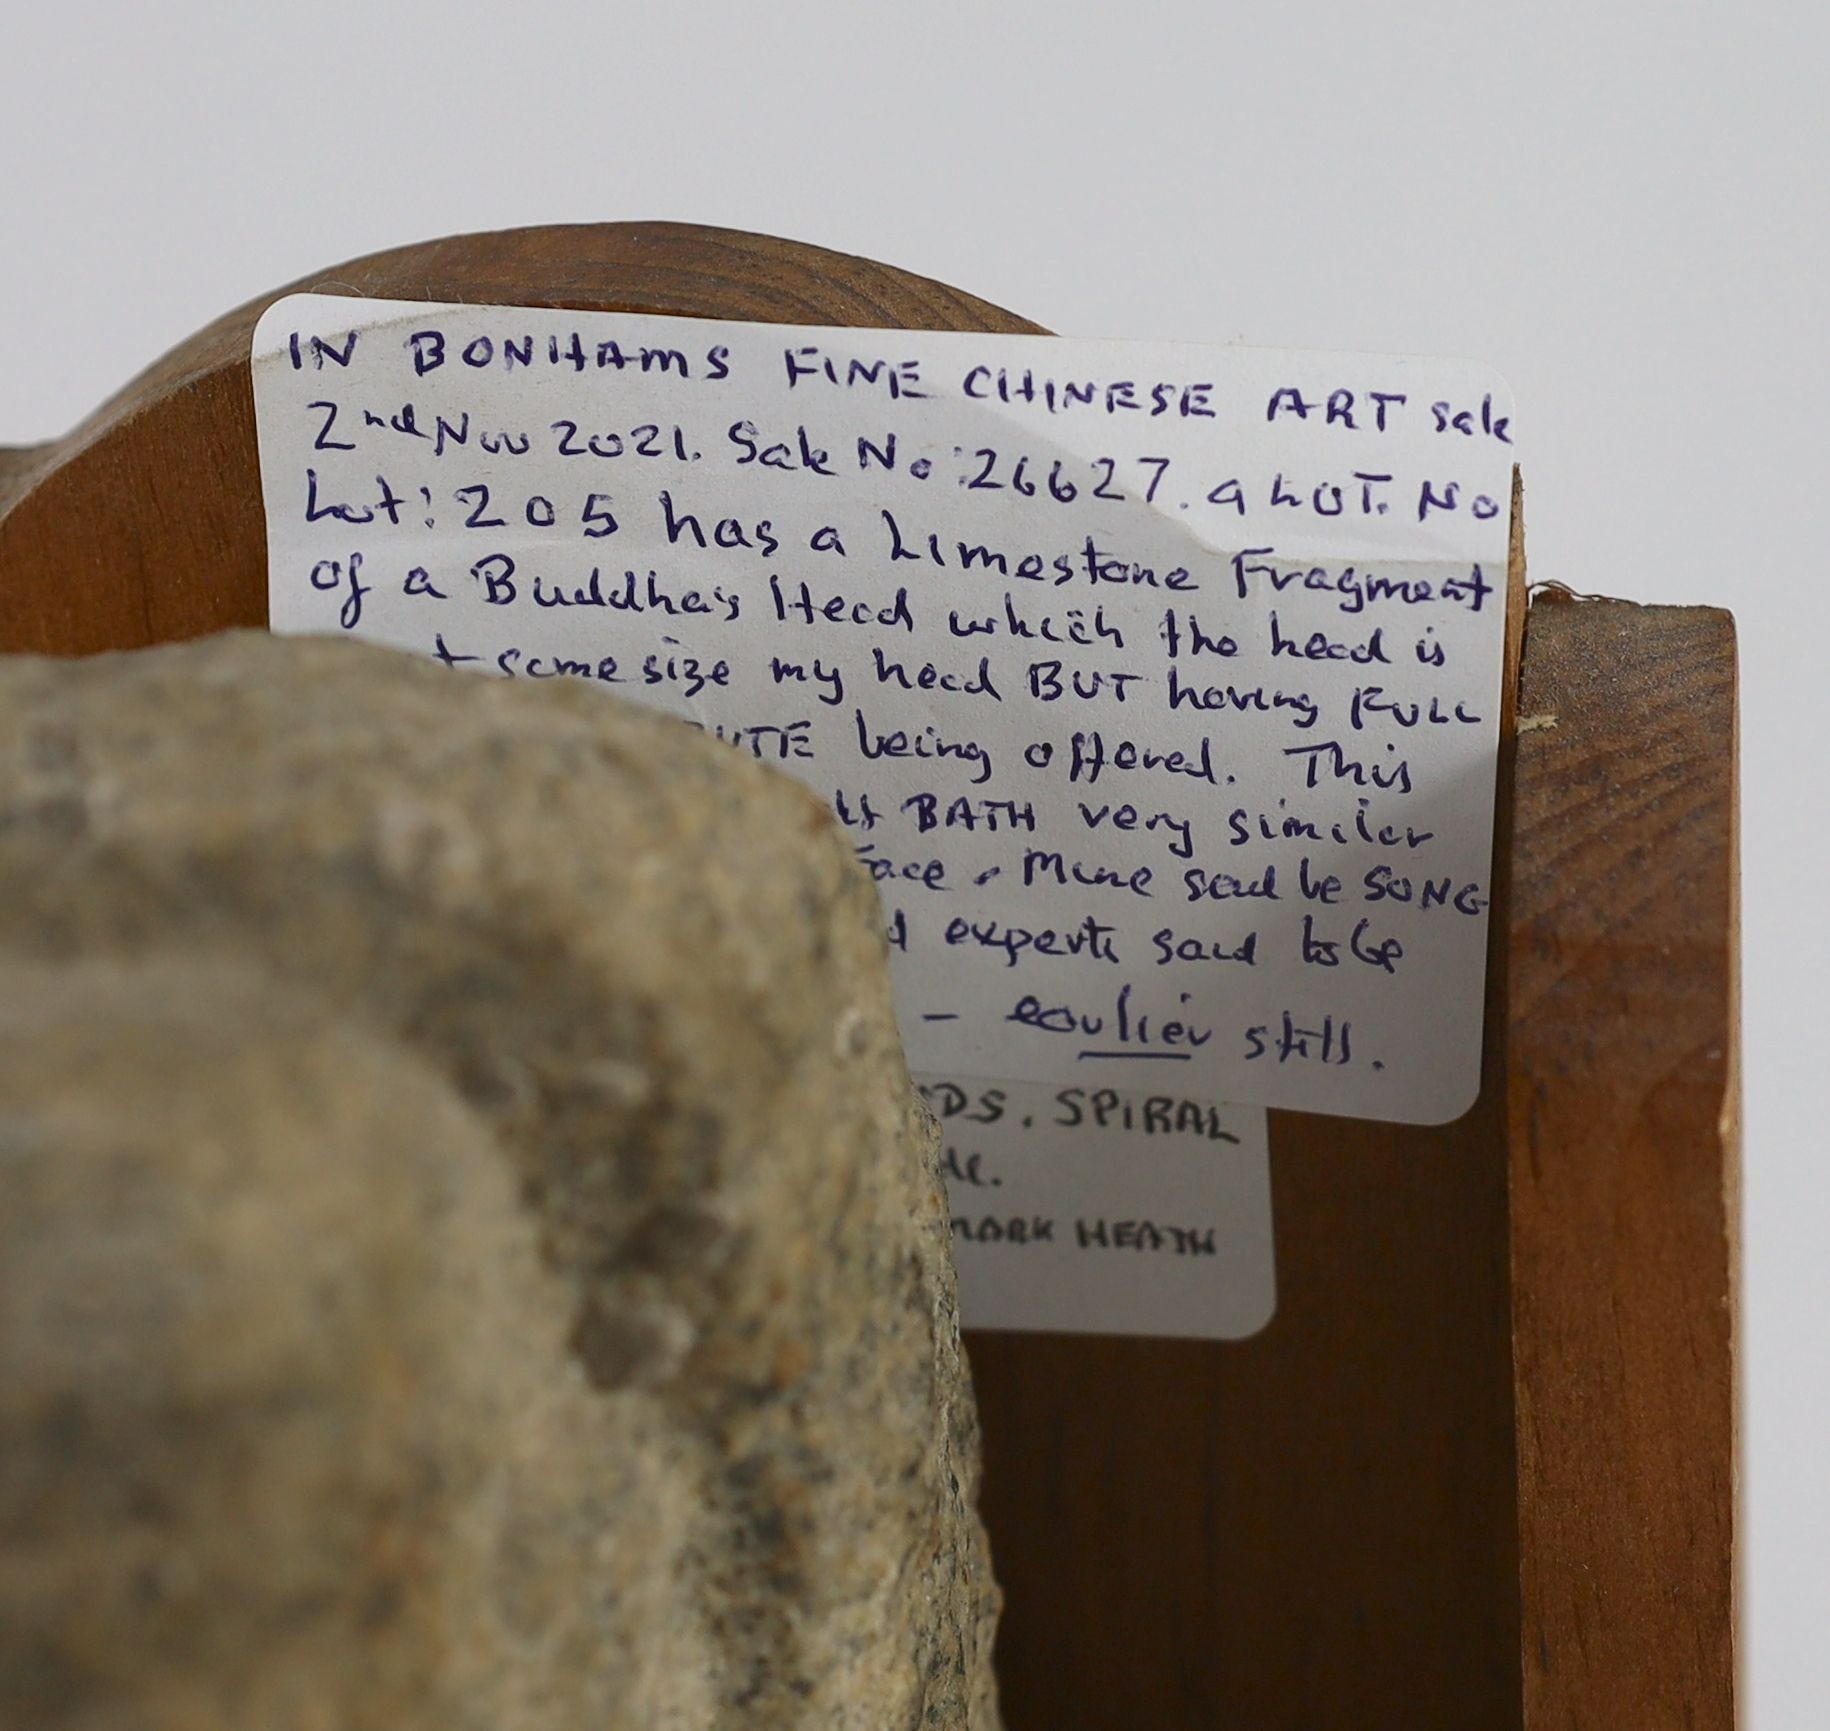 IN BONHAMS FINE CHINESE ART sale
2nd Nov 2021. Sale No: 26627. a LOT. No
Lot: 205 has a Limestone Fragment
of a Buddha's Head which the head is
same size my head BUT having FULL
being offered. This
BATH very similar
Face. Mine said be SONG
experts said to be
- earlier still.
SPIRAL
MARK HEATH